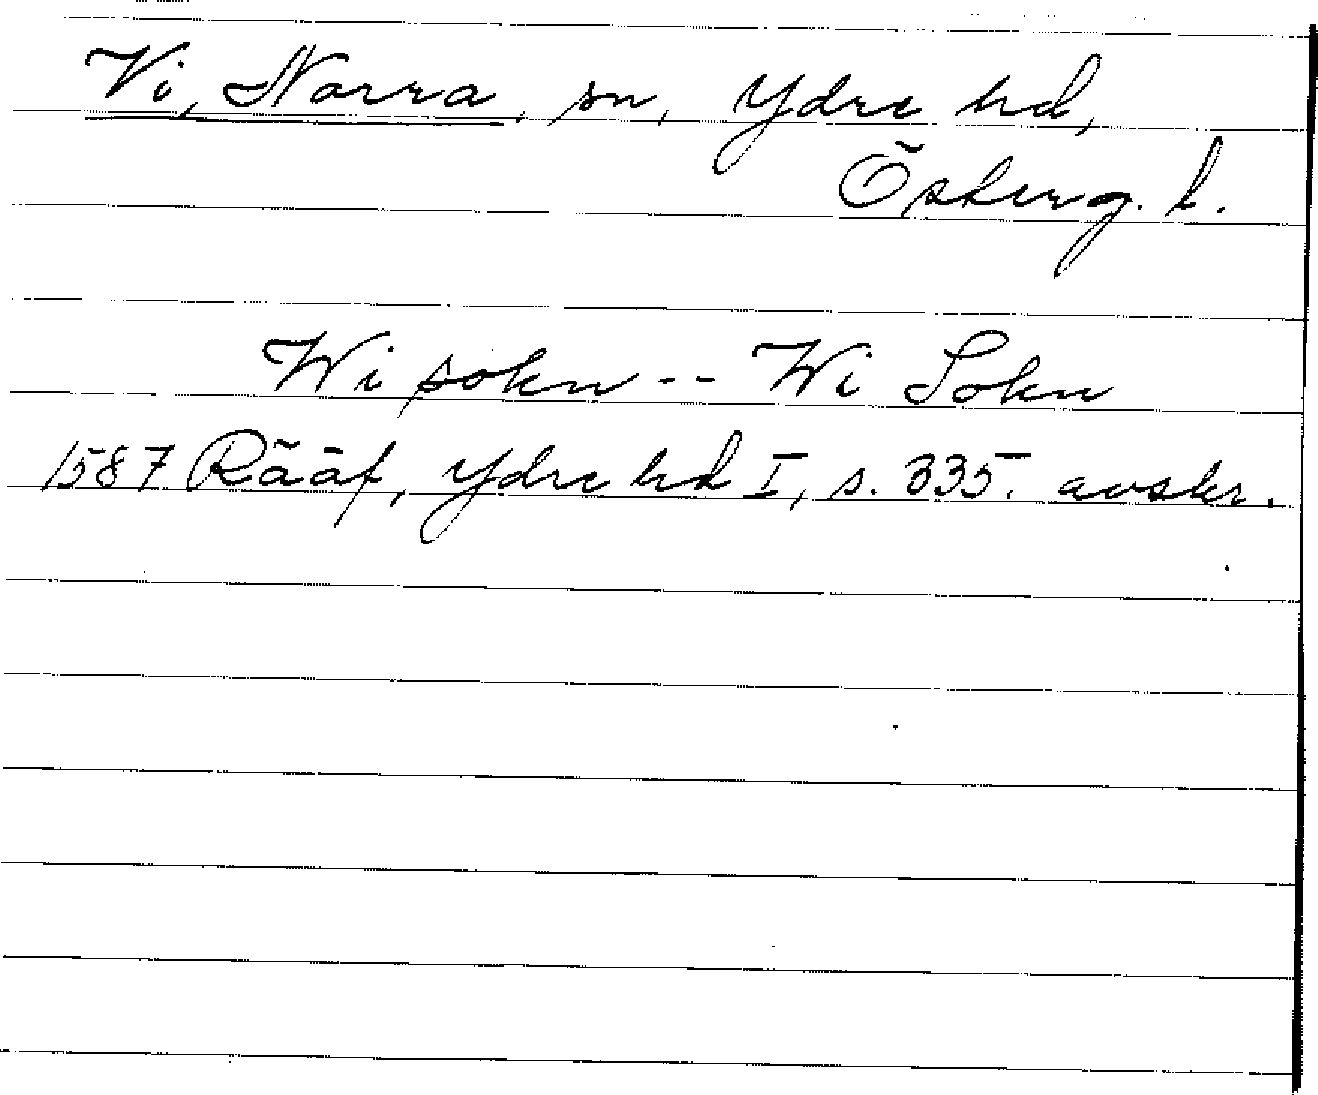 Vi, Norra, sn, Ydre hd,
Österg. l.
Wi sokn -- Wi Sokn
1587 Rääf, Ydre hd I, s. 335. avskr.